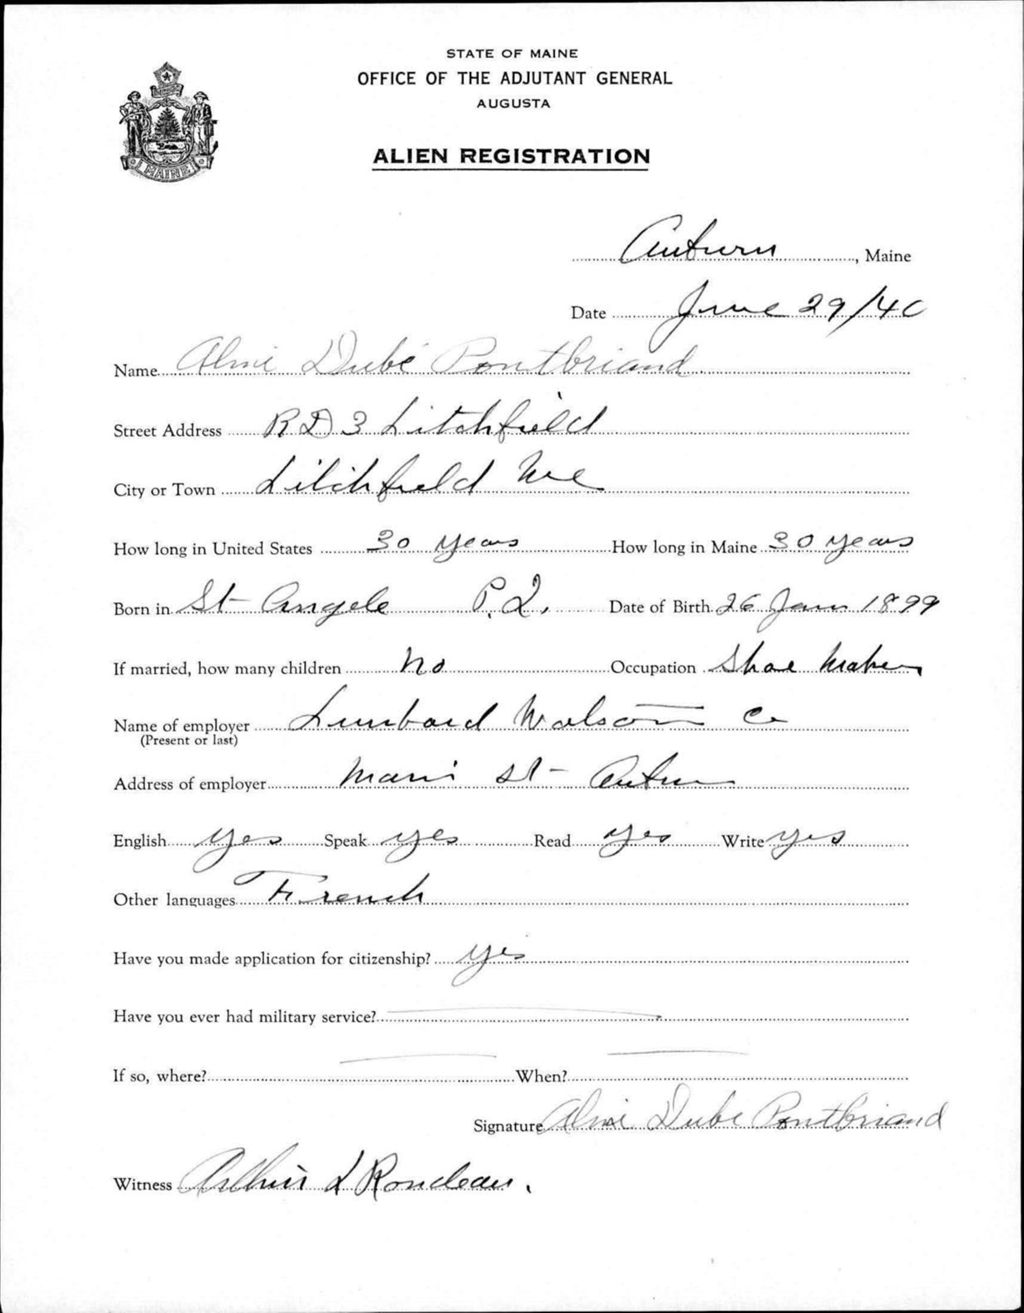 STATE OF MAINE
OFFICE OF THE ADJUTANT GENERAL
AUGUSTA
ALIEN REGISTRATION
MAINE
Auburn, Maine
Date June 29/40
Name Dubé Pontbriand
Street Address RD 3 Litchfield
City or Town Litchfield Me
How long in United States 30 years How long in Maine 30 years
Born in St Angele P.Q. Date of Birth 26 Jan 1899
If married, how many children No Occupation Shoe Maker
Name of employer Lunbard Watson Co
(Present or last)
Address of employer Main St Auburn
English Yes Speak yes Read Yes Write yes
Other languages French
Have you made application for citizenship? Yes
Have you ever had military service?
If so, where? When?
Signature Dube Pontbriand
Witness Arthur L Rondeau.